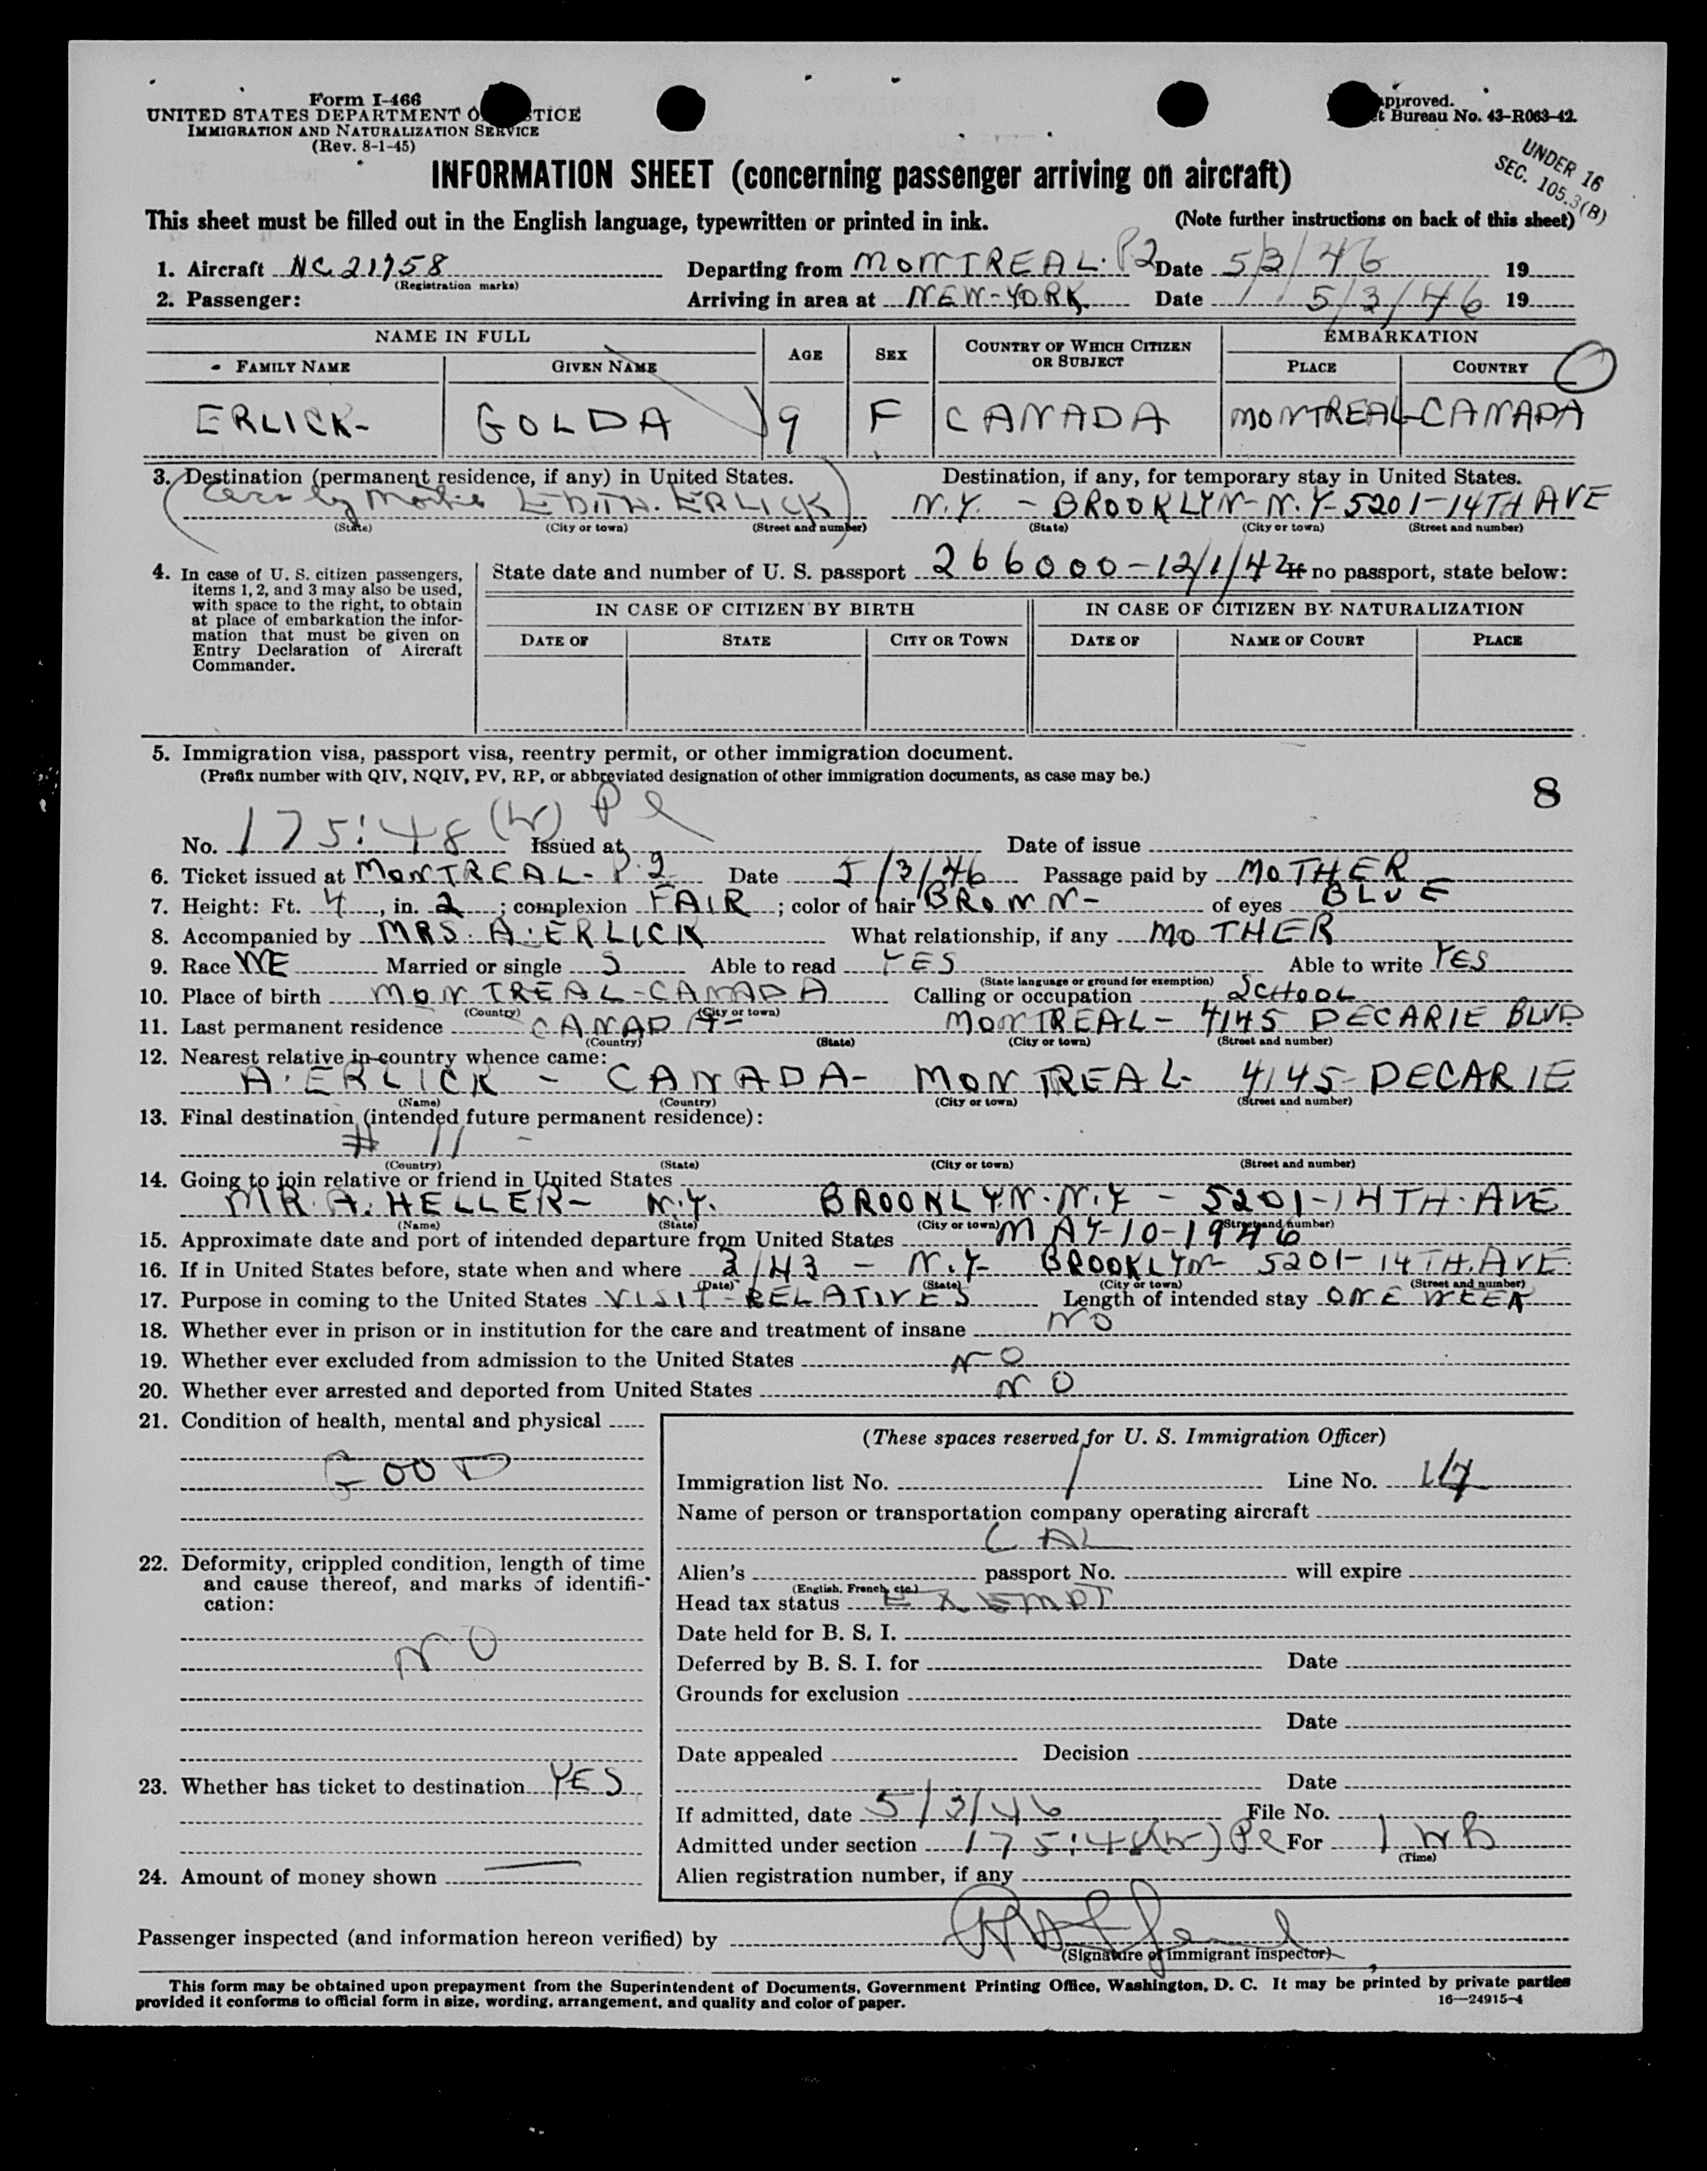 Form I-466
UNITED STATES DEPARTMENT O STICE
IMMIGRATION AND NATURALIZATION SERVICE
(Rev. 8-1-45)
pproved.
t Bureau No. 43-R063-42.
UNDER 16
SEC. 105.3(B)
INFORMATION SHEET (concerning passenger arriving on aircraft)
This sheet must be filled out in the English language, typewritten or printed in ink. (Note further instructions on back of this sheet)
1. Aircraft NC 21758 Departing from MONTREAL. P2 Date 5/3/46 19
(Registration marks)
2. Passenger: Arriving in area at NEW-YORK Date 5/3/46 19
NAME IN FULL AGE SEX COUNTRY OF WHICH CITIZEN OR SUBJECT EMBARKATION
FAMILY NAME GIVEN NAME PLACE COUNTRY
ERLICK- GOLDA 9 F CANADA MONTREAL-CANADA
3. Destination (permanent residence, if any) in United States. Destination, if any, for temporary stay in United States.
EDITH. ERLICK N.Y. - BROOKLYN-N.Y-5201-14TH AVE
(State) (City or town) (Street and number) (State) (City or town) (Street and number)
4. In case of U. S. citizen passengers, items 1, 2, and 3 may also be used, with space to the right, to obtain at place of embarkation the information that must be given on Entry Declaration of Aircraft Commander.
State date and number of U. S. passport 266000-12/1/42 If no passport, state below:
IN CASE OF CITIZEN BY BIRTH IN CASE OF CITIZEN BY NATURALIZATION
DATE OF STATE CITY OR TOWN DATE OF NAME OF COURT PLACE
5. Immigration visa, passport visa, reentry permit, or other immigration document.
(Prefix number with QIV, NQIV, PV, RP, or abbreviated designation of other immigration documents, as case may be.)
8
No. 175:48 (W) Pl Issued at Date of issue
6. Ticket issued at MONTREAL-P.2 Date 5/3/46 Passage paid by MOTHER
7. Height: Ft. 4, in. 2; complexion FAIR; color of hair BROWN- of eyes BLUE
8. Accompanied by MRS. A. ERLICK What relationship, if any MOTHER
9. Race Married or single S Able to read YES Able to write YES
(State language or ground for exemption)
10. Place of birth MONTREAL-CANADA Calling or occupation SCHOOL
(Country) (City or town)
11. Last permanent residence CANADA- MONTREAL- 4145 DECARIE BLVD
(Country) (State) (City or town) (Street and number)
12. Nearest relative in country whence came:
A. ERLICK - CANADA- MONTREAL- 4145-DECARIE
(Name) (Country) (City or town) (Street and number)
13. Final destination (intended future permanent residence):
# 11 -
(Country) (State) (City or town) (Street and number)
14. Going to join relative or friend in United States
MR. A. HELLER- N.Y. BROOKLYN.N.Y - 5201-14TH.AVE
(Name) (State) (City or town) (Street and number)
15. Approximate date and port of intended departure from United States MAY-10-1946
16. If in United States before, state when and where 3/43 - N.Y- BROOKLYN- 5201-14TH.AVE.
(Date) (State) (City or town) (Street and number)
17. Purpose in coming to the United States VISIT-RELATIVES Length of intended stay ONE WEEK
18. Whether ever in prison or in institution for the care and treatment of insane NO
19. Whether ever excluded from admission to the United States NO
20. Whether ever arrested and deported from United States NO
21. Condition of health, mental and physical
GOOD
22. Deformity, crippled condition, length of time and cause thereof, and marks of identification:
NO
23. Whether has ticket to destination YES
24. Amount of money shown
(These spaces reserved for U. S. Immigration Officer)
Immigration list No. 1 Line No.
Name of person or transportation company operating aircraft
CAL
Alien's passport No. will expire
(English, French, etc.)
Head tax status EXEMPT
Date held for B. S. I.
Deferred by B. S. I. for Date
Grounds for exclusion
Date
Date appealed Decision
Date
If admitted, date 5/3/46 File No.
Admitted under section 175:48(W) Pl For 1
(Time)
Alien registration number, if any
Passenger inspected (and information hereon verified) by
(Signature of immigrant inspector)
This form may be obtained upon prepayment from the Superintendent of Documents, Government Printing Office, Washington, D. C. It may be printed by private parties
provided it conforms to official form in size, wording, arrangement, and quality and color of paper. 16—24915-4